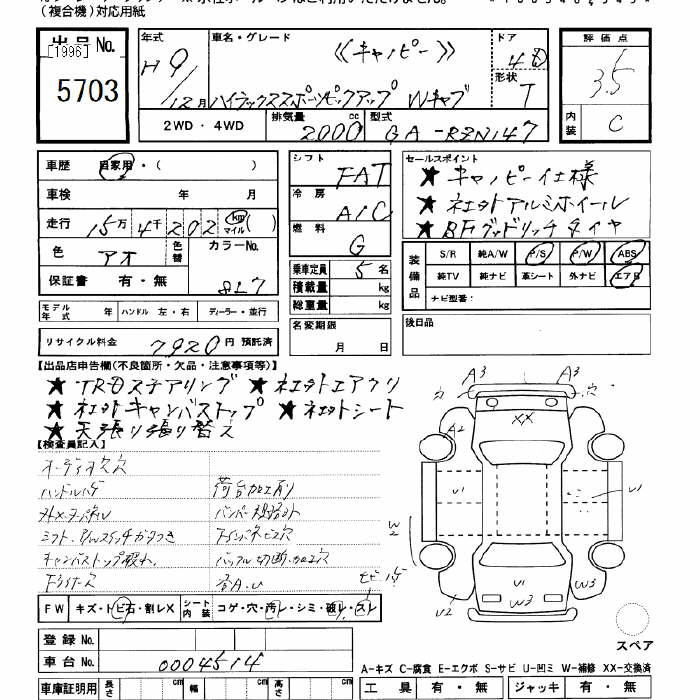 (複合機)対応用紙
出品 No.
[1996]
5703
年式
H9/12月
車名・グレード
《キャノピー》
ハイラックススポーツピックアップ Wキャブ
ドア
4D
形状
T
評価点
3.5
内装
C
2WD・4WD
排気量
2000 cc
型式
GA-RZN147
車歴 自家用・( )
車検 年 月
走行 15万4千202 km マイル ( )
色 アオ
色替
カラーNo.
8L7
保証書 有・無
シフト
FAT
冷房
A/C
燃料
G
乗車定員 5名
積載量 kg
総重量 kg
セールスポイント
★キャノピー仕様
★社外アルミホイール
★BFグッドリッチタイヤ
装備品
S/R 純A/W P/S P/W ABS
純TV 純ナビ 革シート 外ナビ エアB
ナビ型番:
モデル年式 年 ハンドル 左・右 ディーラー・並行
リサイクル料金 7920 円 預託済
名変期限
月 日
後日品
【出品店申告欄(不良箇所・欠品・注意事項等)】
★TRDステアリング ★社外エアクリ
★社外キャンバストップ ★社外シート
★天張り張り替え
【検査員記入】
オーディオ欠
ハンドルハゲ
荷台加工有り
外メーターパネル
シフト・P/Wスイッチガタつき
キャンバストップ破れ
マフラー切断・加工
A3 A3
穴
XX
A2
U1 U1
W2
U1
W3 W3
U2
FW キズ・トビ石・割レX
シート内装 コゲ・穴・汚レ・シミ・破レ・スレ
登録 No.
車台 No. 0004514
スペア
A-キズ C-腐食 E-エクボ S-サビ U-凹ミ W-補修 XX-交換済
車庫証明用 長さ cm 幅 cm 高さ cm
工具 有・無 ジャッキ 有・無